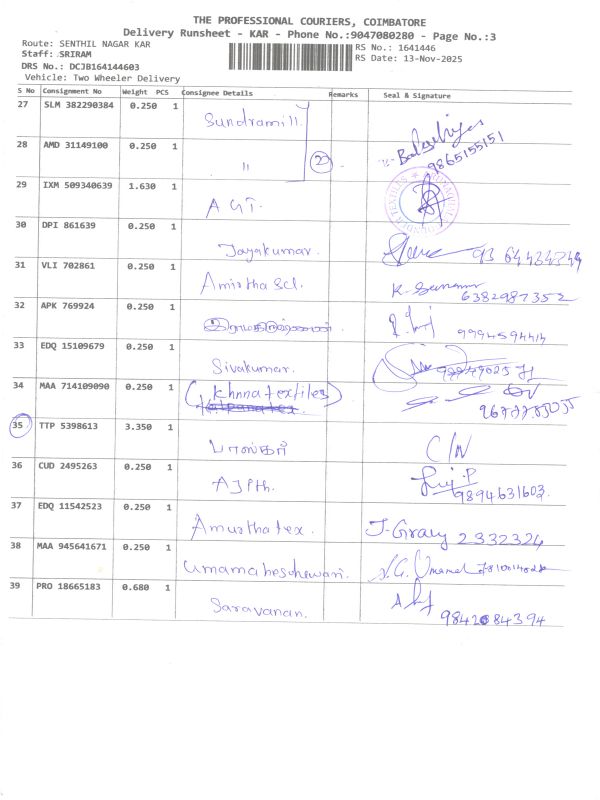 THE PROFESSIONAL COURIERS, COIMBATORE
Delivery Runsheet - KAR - Phone No.:9047080280 - Page No.:3
Route: SENTHIL NAGAR KAR
RS No.: 1641446
Staff: SRIRAM
RS Date: 13-Nov-2025
DRS No.: DCJB164144603
Vehicle: Two Wheeler Delivery
S No Consignment No Weight PCS Consignee Details Remarks Seal & Signature
27 SLM 382290384 0.250 1
Sundramill.
28 AMD 31149100 0.250 1
" 2
9865155151
29 IXM 509340639 1.630 1
A G T.
30 DPI 861639 0.250 1
Jayakumar.
31 VLI 702861 0.250 1
Amirtha Scl. K.
6382987352
32 APK 769924 0.250 1
9994594414
33 EDQ 15109679 0.250 1
Sivakumar.
34 MAA 714109090 0.250 1
(Khnna textiles)
35 TTP 5398613 3.350 1
பாஸ்கர் C/N
36 CUD 2495263 0.250 1
AJPth.
9894631603.
37 EDQ 11542523 0.250 1
Amurtha tex. 2332324
38 MAA 945641671 0.250 1
Umamaheschewari.
39 PRO 18665183 0.680 1
Saravanan.
9842084394